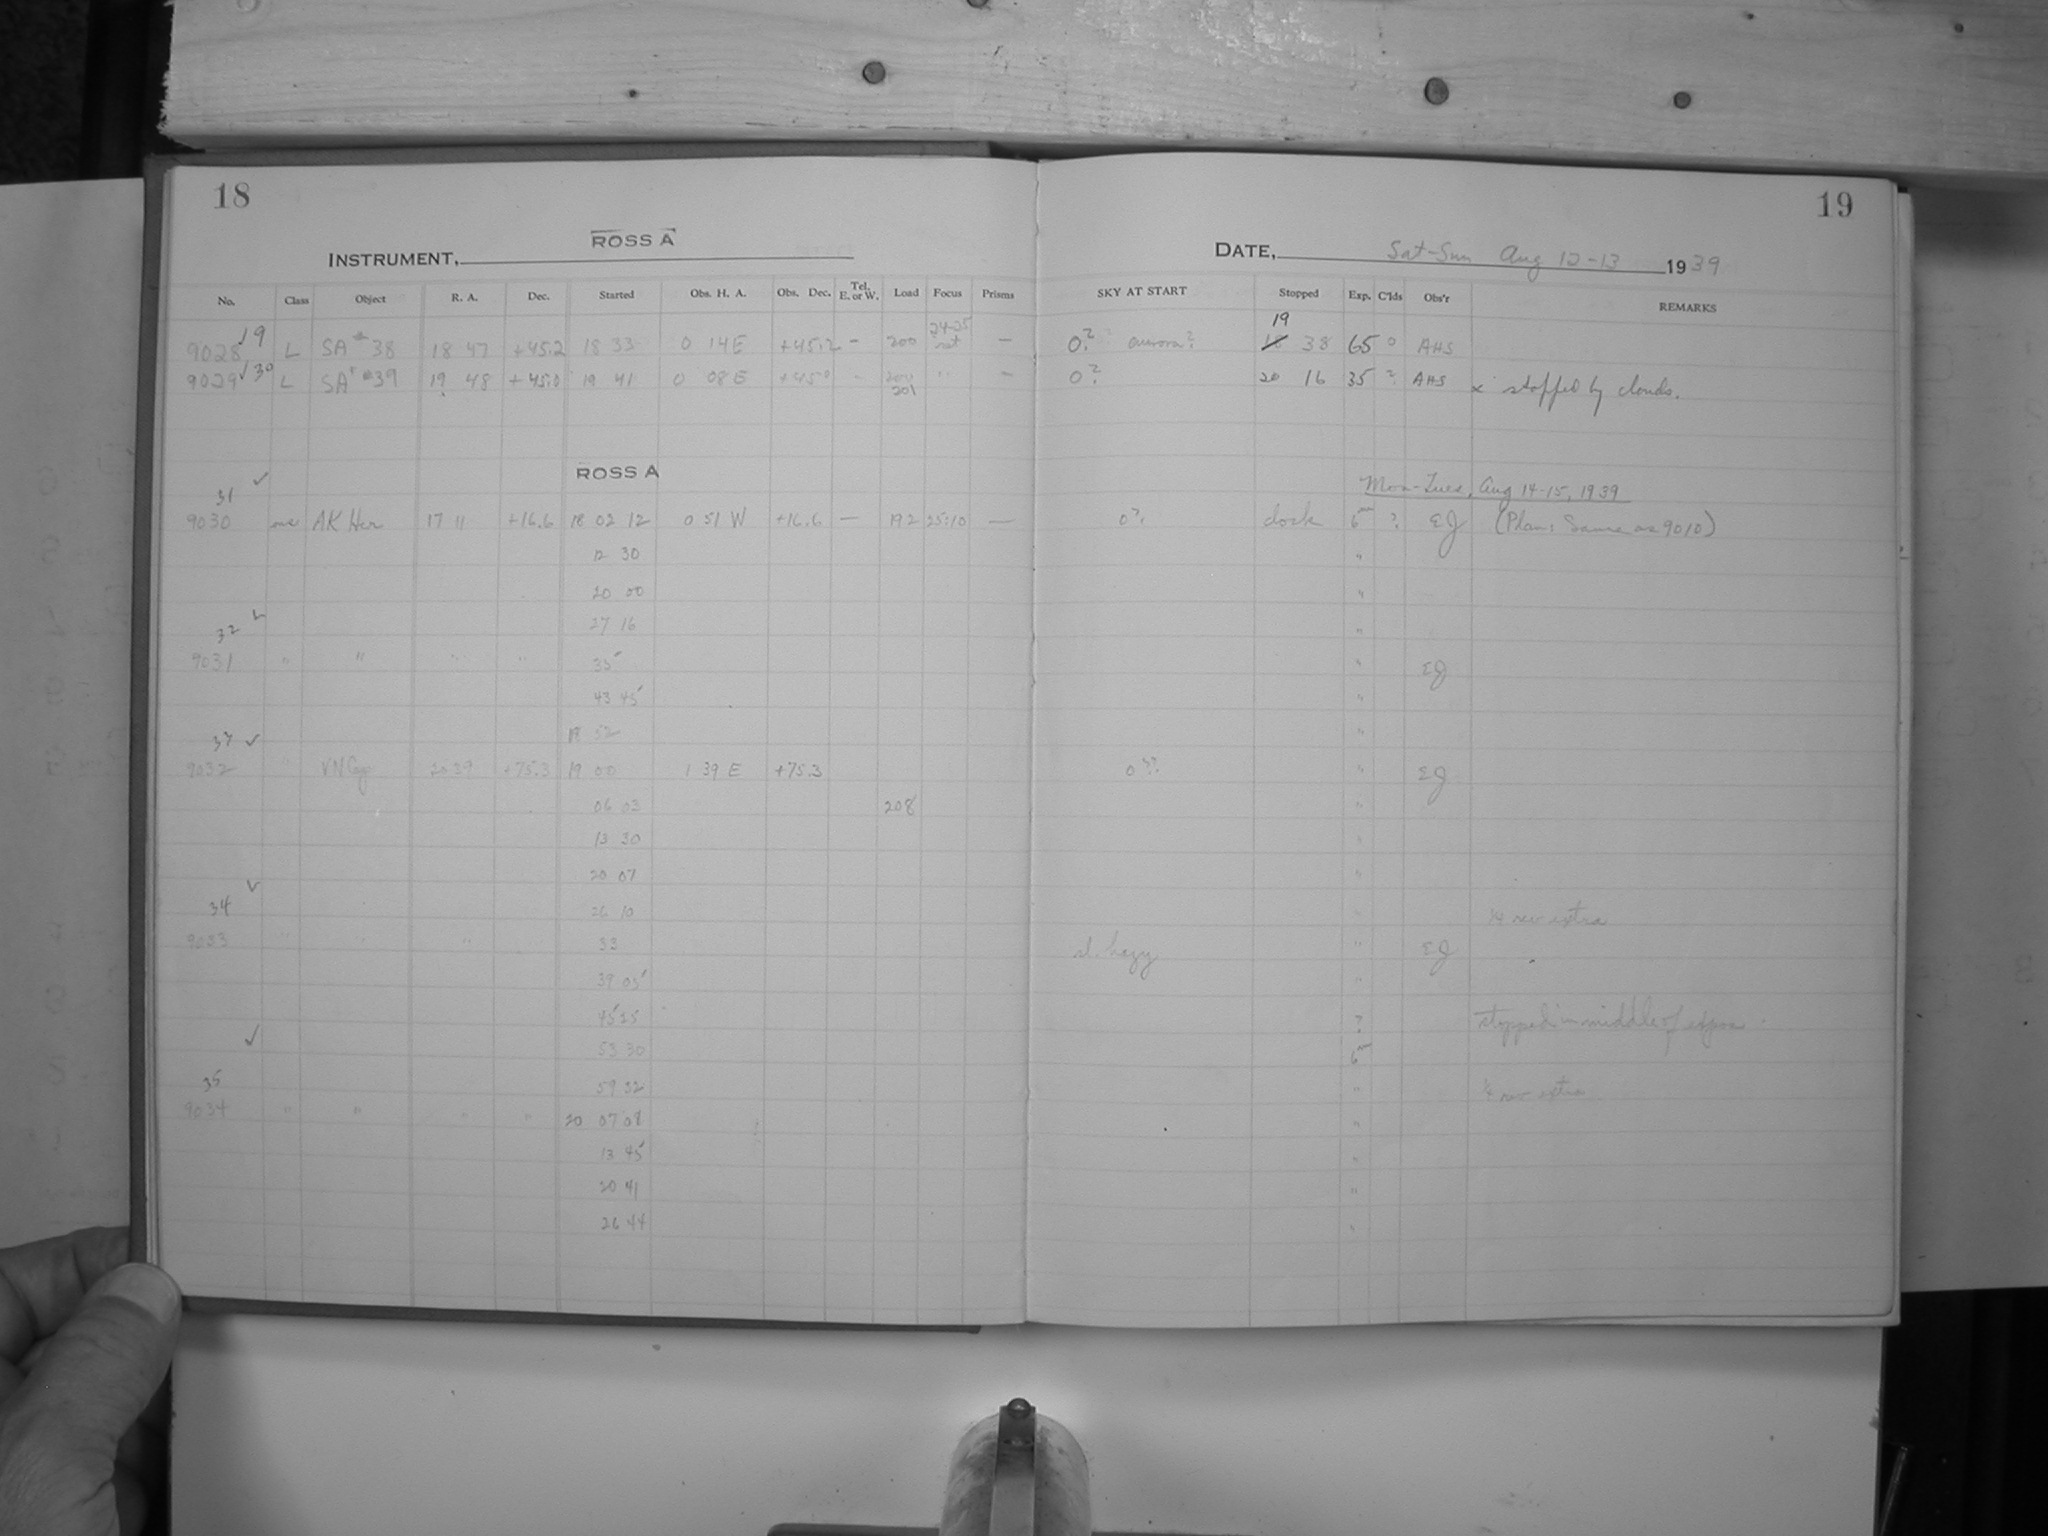 18
INSTRUMENT, ROSS A
No. Class Object R. A. Dec. Started Obs. H. A. Obs. Dec. Tel. E. or W. Load Focus Prisms
9028 L SA 38 18 47 +45.2 18 33 0 14 E +45.2 - 200 —
9029 L SA 39 19 48 +45.0 19 41 0 08 E +45.0 - 200 " —
201
ROSS A
31 ✓
9030 AK Her 17 11 +16.6 18 02 12 0 51 W +16.6 — 192 25:10 —
12 30
20 00
27 16
32
9031 " " " " 35
43 45
18 52
9032 VN Cep 20 39 +75.3 19 00 1 39 E +75.3
06 03 208
13 30
20 07
34 ✓ 26 10
9033 " " " 33
39 05
45 25
✓ 53 30
35 59 32
9034 " " " " 20 07 08
13 45
20 41
26 44
19
DATE, Sat-Sun Aug 12-13 1939
SKY AT START Stopped Exp. C'lds Obs'r REMARKS
0? aurora? 19 38 65 0 AHS
0? 20 16 35 ? AHS x stopped by clouds.
Mon-Tues, Aug 14-15, 1939
0?. clock 6m ? EJ (Plan: Same as 9010)
"
"
"
" EJ
"
"
0 ??. " EJ
"
"
"
extra
sl. hazy " EJ
"
? stopped in middle of expos
6m
" extra
"
"
"
"